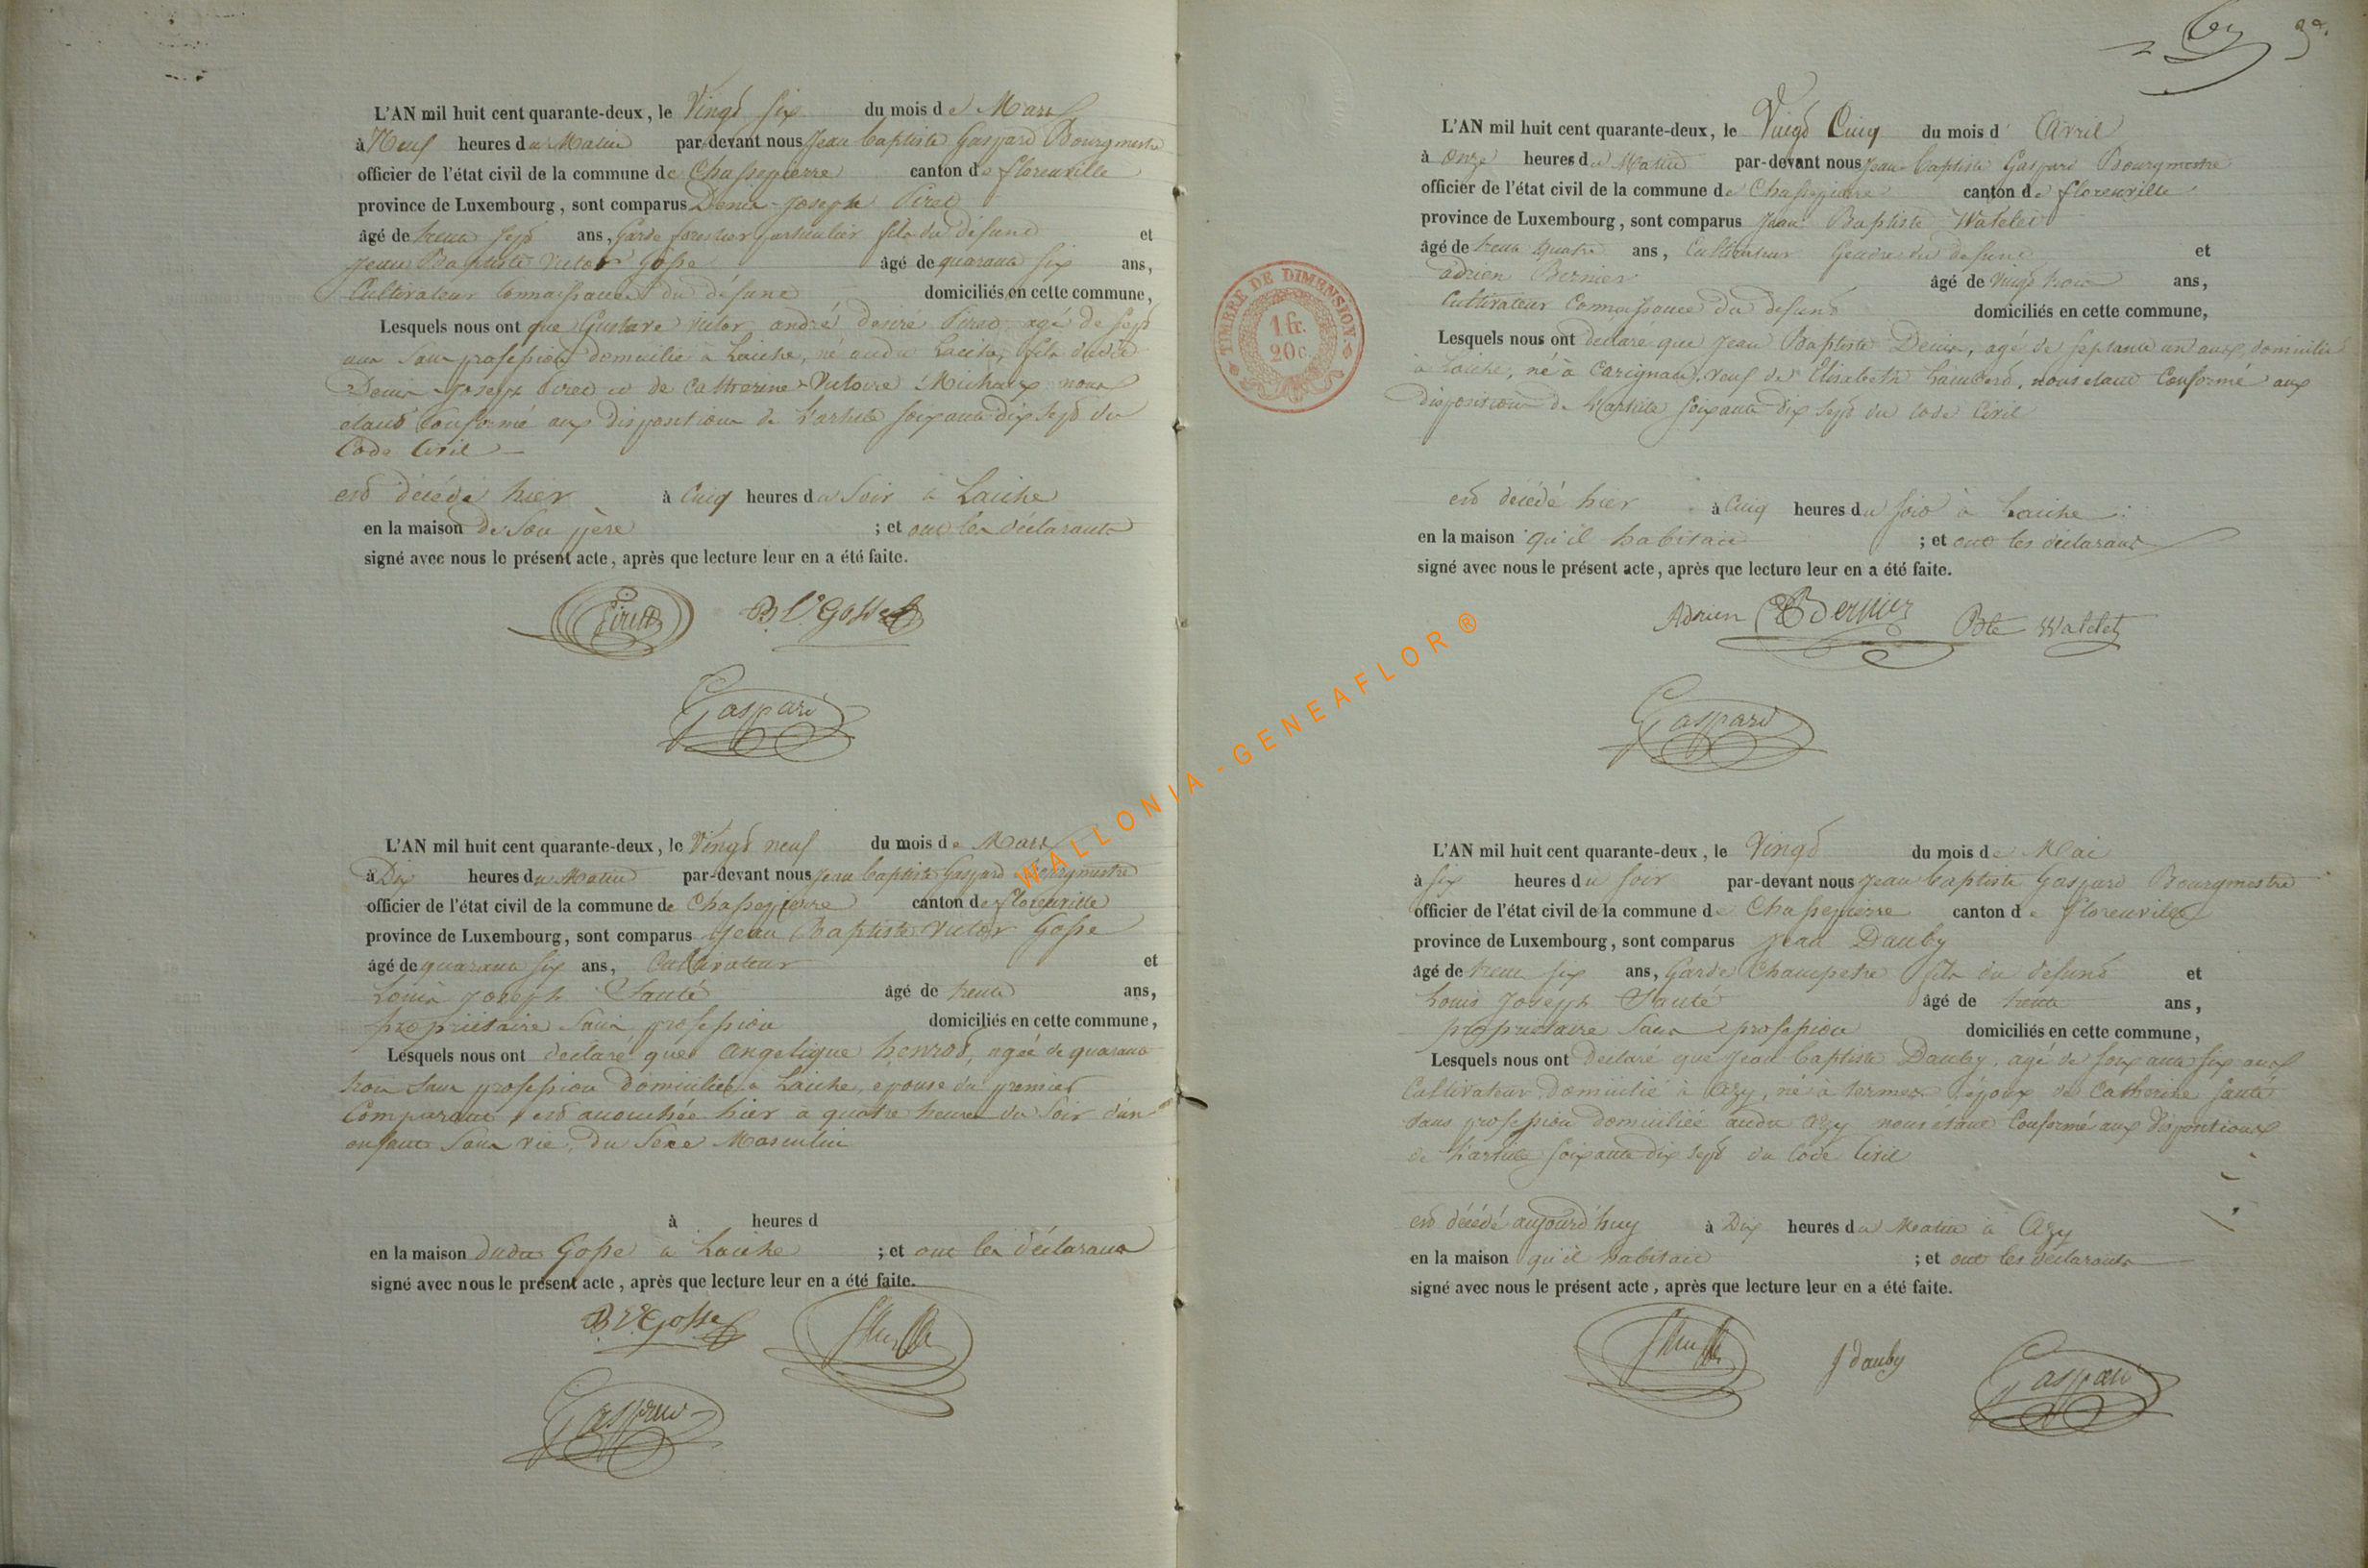 L'AN mil huit cent quarante-deux, le Vingt six du mois de Mars
à Neuf heures du Matin par-devant nous Jean baptiste Gaspard Bourgmestre
officier de l'état civil de la commune de Chassepierre canton de florenville
province de Luxembourg, sont comparus Denis Joseph Piret
âgé de trente sept ans, Garde forestier particulier fils du défunt et
Jean Baptiste Victor Gosse âgé de quarante six ans,
Cultivateur Connaissance du défunt domiciliés en cette commune,
Lesquels nous ont que Gustave Victor andré desiré Piret agé de sept
ans sans profession domicilié à Laiche, né audit Laiche, fils dudit
Denis Joseph Piret et de Catherine Victoire Michaux nous
étant Conformé aux dispositions de l'article soixante dix sept du
Code Civil
est décédé hier à Cinq heures du Soir à Laiche
en la maison de Son père ; et ont les déclarants
signé avec nous le présent acte, après que lecture leur en a été faite.
Piret B. V. Gosse
Gaspard
L'AN mil huit cent quarante-deux, le Vingt neuf du mois de Mars
à Dix heures du Matin par-devant nous Jean baptiste Gaspard Bourgmestre
officier de l'état civil de la commune de Chassepierre canton de florenville
province de Luxembourg, sont comparus Jean Baptiste Victor Gosse
âgé de quarante six ans, Cultivateur et
Louis Joseph Santé âgé de trente ans,
propriétaire Sans profession domiciliés en cette commune,
Lesquels nous ont declaré que angelique henrot, agée de quarante
trois sans profession domiciliée à Laiche, epouse du premier
Comparant est accouchée hier a quatre heures du Soir d'un
enfant Sans vie, du Sexe Masculin
à heures d
en la maison dudit Gosse à Laiche ; et ont les déclarants
signé avec nous le présent acte, après que lecture leur en a été faite.
B V Gosse
Gaspard
L'AN mil huit cent quarante-deux, le Vingt Cinq du mois d' Avril
à onze heures du Matin par-devant nous Jean baptiste Gaspard Bourgmestre
officier de l'état civil de la commune de Chassepierre canton de florenville
province de Luxembourg, sont comparus Jean Baptiste Watelet
âgé de trente quatre ans, Cultivateur Gendre du defunt et
adrien Bernier âgé de vingt trois ans,
Cultivateur Connaissance du defunt domiciliés en cette commune,
Lesquels nous ont declaré que Jean Baptiste Denis, agé de septante un ans, domicilié
à Laiche, né à Carignan, veuf de Elisabeth Lambert, nous etant Conformé aux
dispositions de l'article soixante dix sept du Code Civil
est décédé hier à Cinq heures du soir à Laiche
en la maison qu'il habitait ; et ont les declarants
signé avec nous le présent acte, après que lecture leur en a été faite.
Adrien Bernier Bte Watelet
Gaspard
L'AN mil huit cent quarante-deux, le Vingt du mois de Mai
à six heures du soir par-devant nous Jean baptiste Gaspard Bourgmestre
officier de l'état civil de la commune de Chassepierre canton de florenville
province de Luxembourg, sont comparus Jean Dauby
âgé de trente six ans, Garde Champetre fils du defunt et
Louis Joseph Santé âgé de trente ans,
propriétaire Sans profession domiciliés en cette commune,
Lesquels nous ont declaré que Jean baptiste Dauby, agé de soixante six ans
Cultivateur domicilié à Azy, né à termes, époux de Catherine Santé
sans profession domiciliée audit Azy nous étant Conformé aux dispositions
de l'article soixante dix sept du Code Civil
est décédé aujourd'huy à Dix heures du Matin à Azy
en la maison qu'il habitait ; et ont les déclarants
signé avec nous le présent acte, après que lecture leur en a été faite.
J dauby Gaspard
TIMBRE DE DIMENSION
1 fr.
20 c.
WALLONIA - GENEAFLOR ®